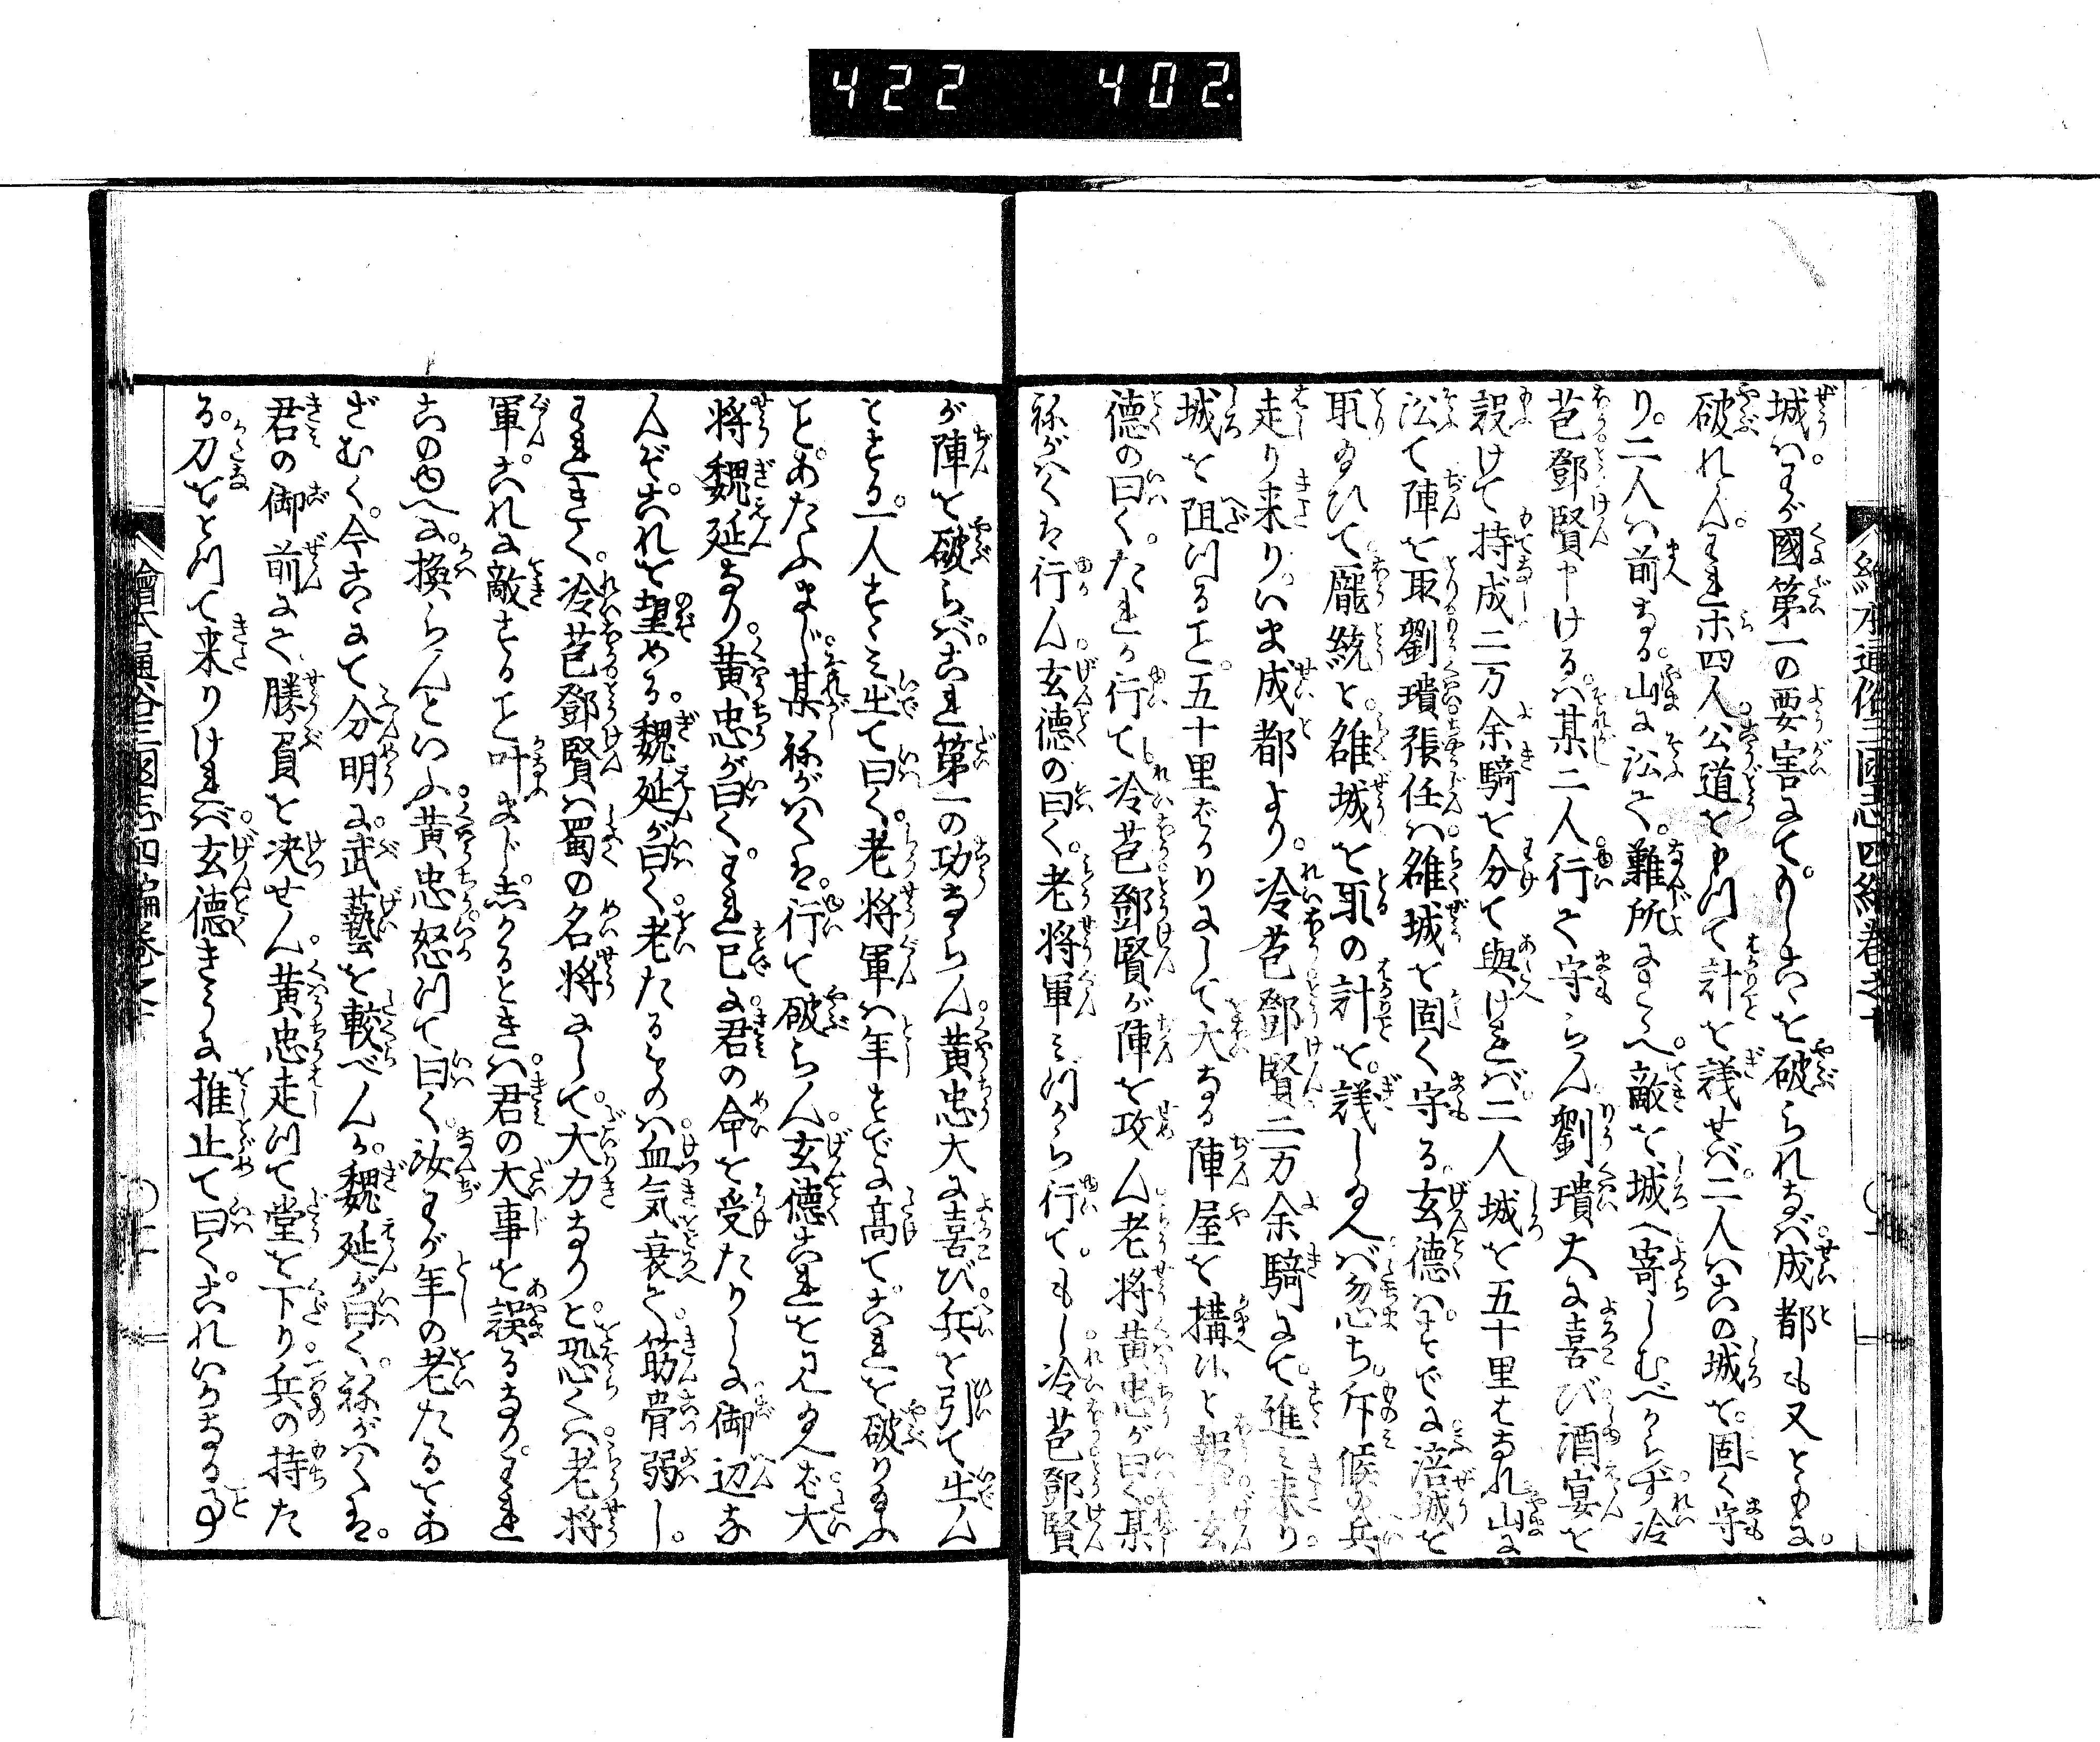 422 402.
繪本通俗三國志四編卷之十
城はわが國第一の要害にて。もしこゝを破られなば成都も又ともに。
破れん。われホ四人公道をもつて計を議せば。二人はこの城を。固く守
り。二人は前なる。山に㳂て。難所にまへ敵を城へ寄しむべからず冷
苞鄧賢申けるは。某二人行て守らん劉璝大に喜び酒宴を
設けて持成二万余騎を分て與ければ。二人城を五十里はなれ山に
㳂て陣を取劉璝張任は。雒城を固く守る。玄德は。すでに涪城を
取ゐひて。龐統と。雒城を取の計を。議しゐへば忽ち。斥候の兵
走り来り。いま成都より。冷苞鄧賢二万余騎にて。進み来り。
城を阻つること。五十里ばかりにして大なる陣屋を搆けると報ず玄
德の曰く。たれか行て。冷苞鄧賢が陣を攻ん。老将黄忠が曰く。某
ねがはくは行ん。玄德の曰く。老将軍みづから行て。もし冷苞鄧賢
が陣を破らば。これ第一の功ならん。黄忠大に喜び。兵を引て出ん
とする。一人すゝみ出て曰く。老将軍は年すでに高て。これを破り給ふ
こと。あたふまじ。某ねがはくは。行て破らん。玄德これを見給へば。大
将魏延なり。黄忠が曰く。われ已に君の命を受たりしに。御辺な
んぞ。これを望める。魏延が曰く。老たるものは。血気衰て。筋骨弱し。
われきく。冷苞鄧賢は。蜀の名将にして。大力なりと。恐くは老将
軍。これに敵すること叶まじ。しかるときは。君の大事を誤るなり。われ
このゆへに。換らんといふ。黄忠怒つて曰く。汝わが年の老たるをあ
ざむく。今こゝにて分明に。武藝を較べんか。魏延が曰く。ねがはくは。
君の御前にて勝負を決せん。黄忠走つて堂を下り。兵の持た
る。刀をとつて来りければ。玄德きうに推止て曰く。これいかなる事
繪本通俗三國志四編卷之十